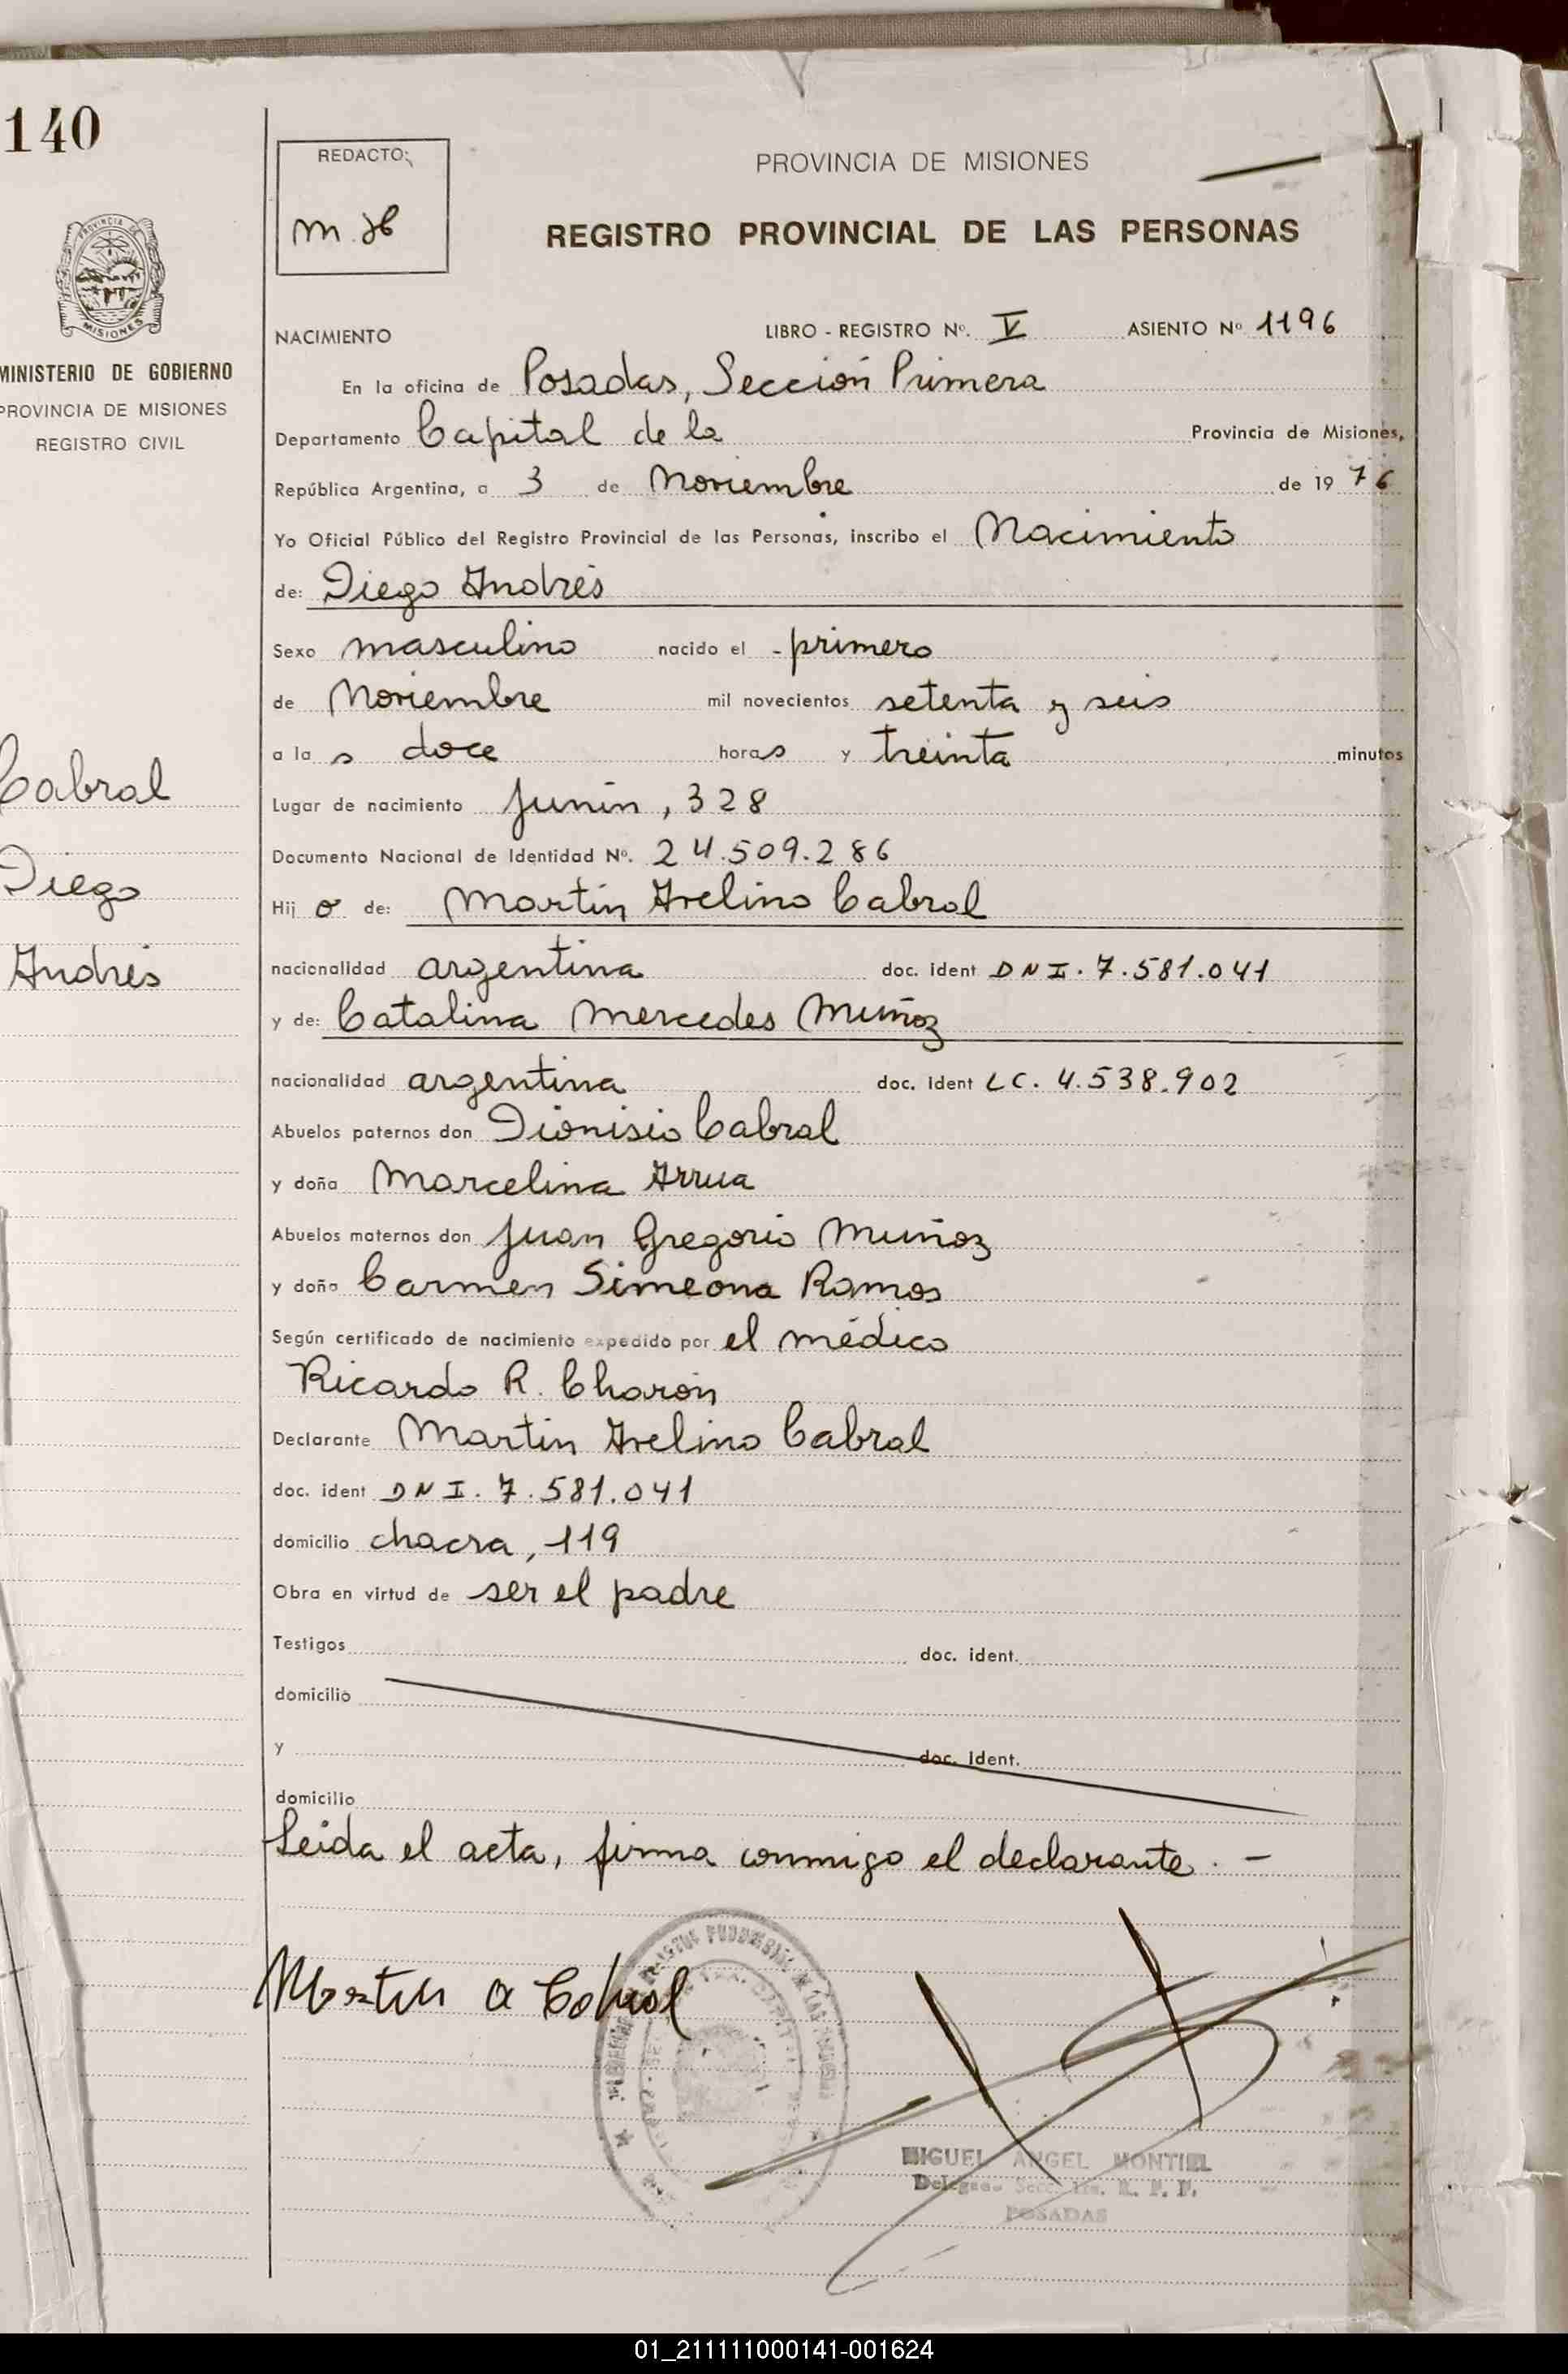 140
MINISTERIO DE GOBIERNO
PROVINCIA DE MISIONES
REGISTRO CIVIL
Cabral
Diego
Andrés
REDACTO:
PROVINCIA DE MISIONES
REGISTRO PROVINCIAL DE LAS PERSONAS
NACIMIENTO LIBRO - REGISTRO Nº. V ASIENTO Nº 1196
En la oficina de Posadas, Sección Primera
Departamento Capital de la Provincia de Misiones,
República Argentina, a 3 de Noviembre de 19 76
Yo Oficial Público del Registro Provincial de las Personas, inscribo el Nacimiento
de: Diego Andrés
Sexo masculino nacido el - primero
de Noviembre mil novecientos setenta y seis
a la s doce horas y treinta minutos
Lugar de nacimiento Junín, 328
Documento Nacional de Identidad Nº. 24.509.286
Hij o de: Martín Avelino Cabral
nacionalidad argentina doc. ident DNI. 7.581.041
y de: Catalina Mercedes Muñoz
nacionalidad argentina doc. ident LC. 4.538.902
Abuelos paternos don Dionisio Cabral
y doña Marcelina Arrua
Abuelos maternos don Juan Gregorio Muñoz
y doña Carmen Simeona Ramos
Según certificado de nacimiento expedido por el médico
Ricardo R. Charón
Declarante Martín Avelino Cabral
doc. ident DNI. 7.581.041
domicilio chacra, 119
Obra en virtud de ser el padre
Testigos doc. ident.
domicilio
y doc. ident.
domicilio
Leida el acta, firma conmigo el declarante. -
Martin A Cabral
MIGUEL ANGEL MONTIEL
POSADAS
01_211111000141-001624